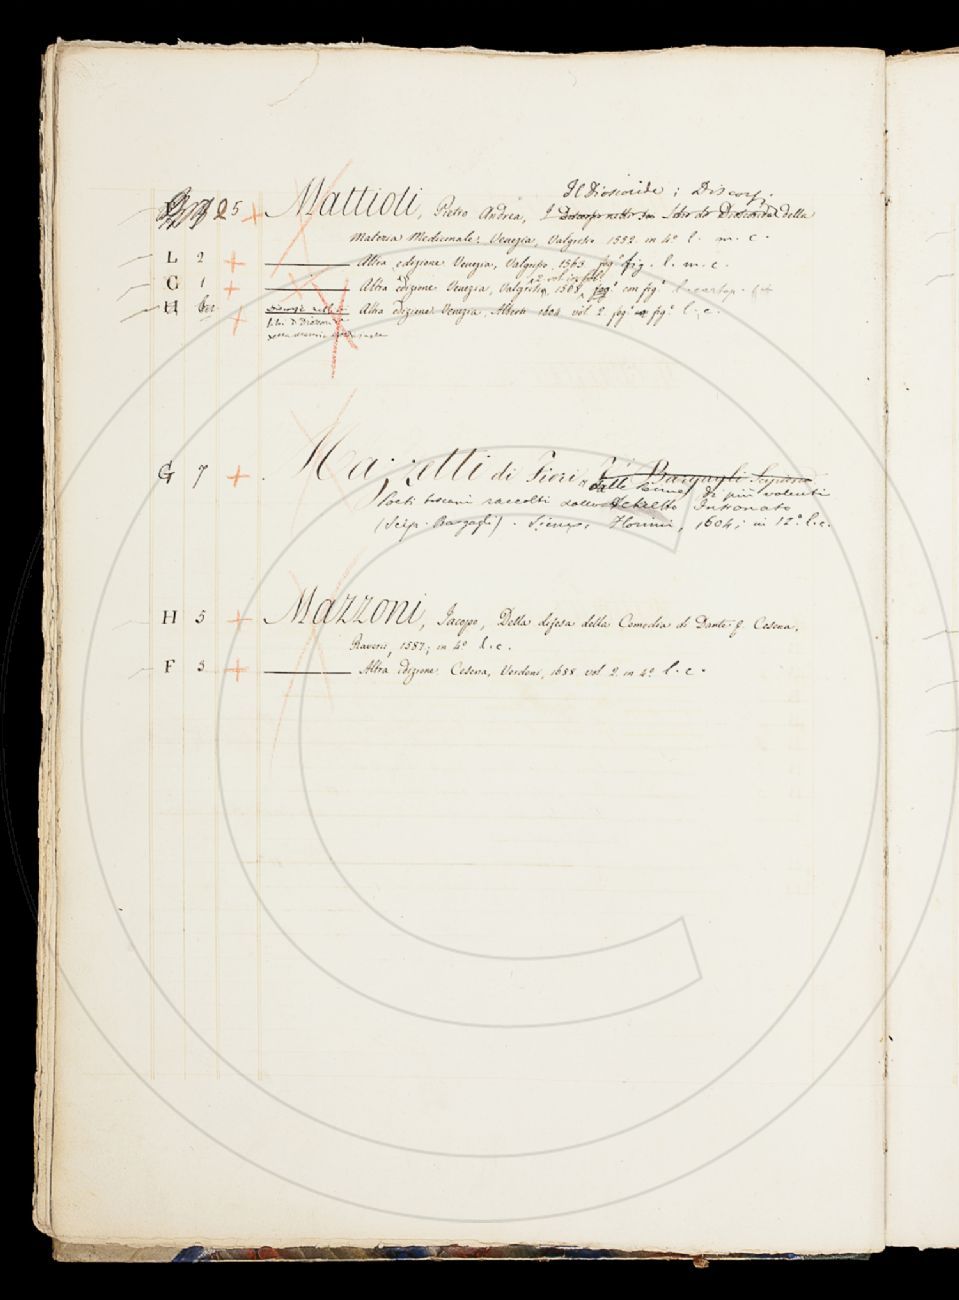 Il Dioscoride; Discorsi
25 Mattioli, Pietro Andrea, I Discorsi nelli sei libri di Dioscoride della
Materia Medicinale; Venezia, Valgrisi 1552 in 4° l. m. c.
L 2 Altra edizione Venezia, Valgrisi 1563 fog° fig. l. m. c.
in fol°
G 1 Altra edizione Venezia, Valgrisi, 1568, fog° con fig°
H Discorsi nelli Altra edizione Venezia, Alberti 1604 vol 2. fog° fig° l. c.
libri di Dioscoride
G 7 Mazzetti di Fiori Bargagli Scipione
delle di più valenti
Poeti toscani raccolti dallo Schietto Intronato
(Scip. Bargagli). Siena, Florimi, 1604; in 12° l. c.
H 5 Mazzoni, Jacopo, Della difesa della Comedia di Dante &. Cesena,
Raverii, 1587; in 4° l. c.
F 3 Altra edizione Cesena, Verdoni, 1688 vol 2. in 4° l. c.